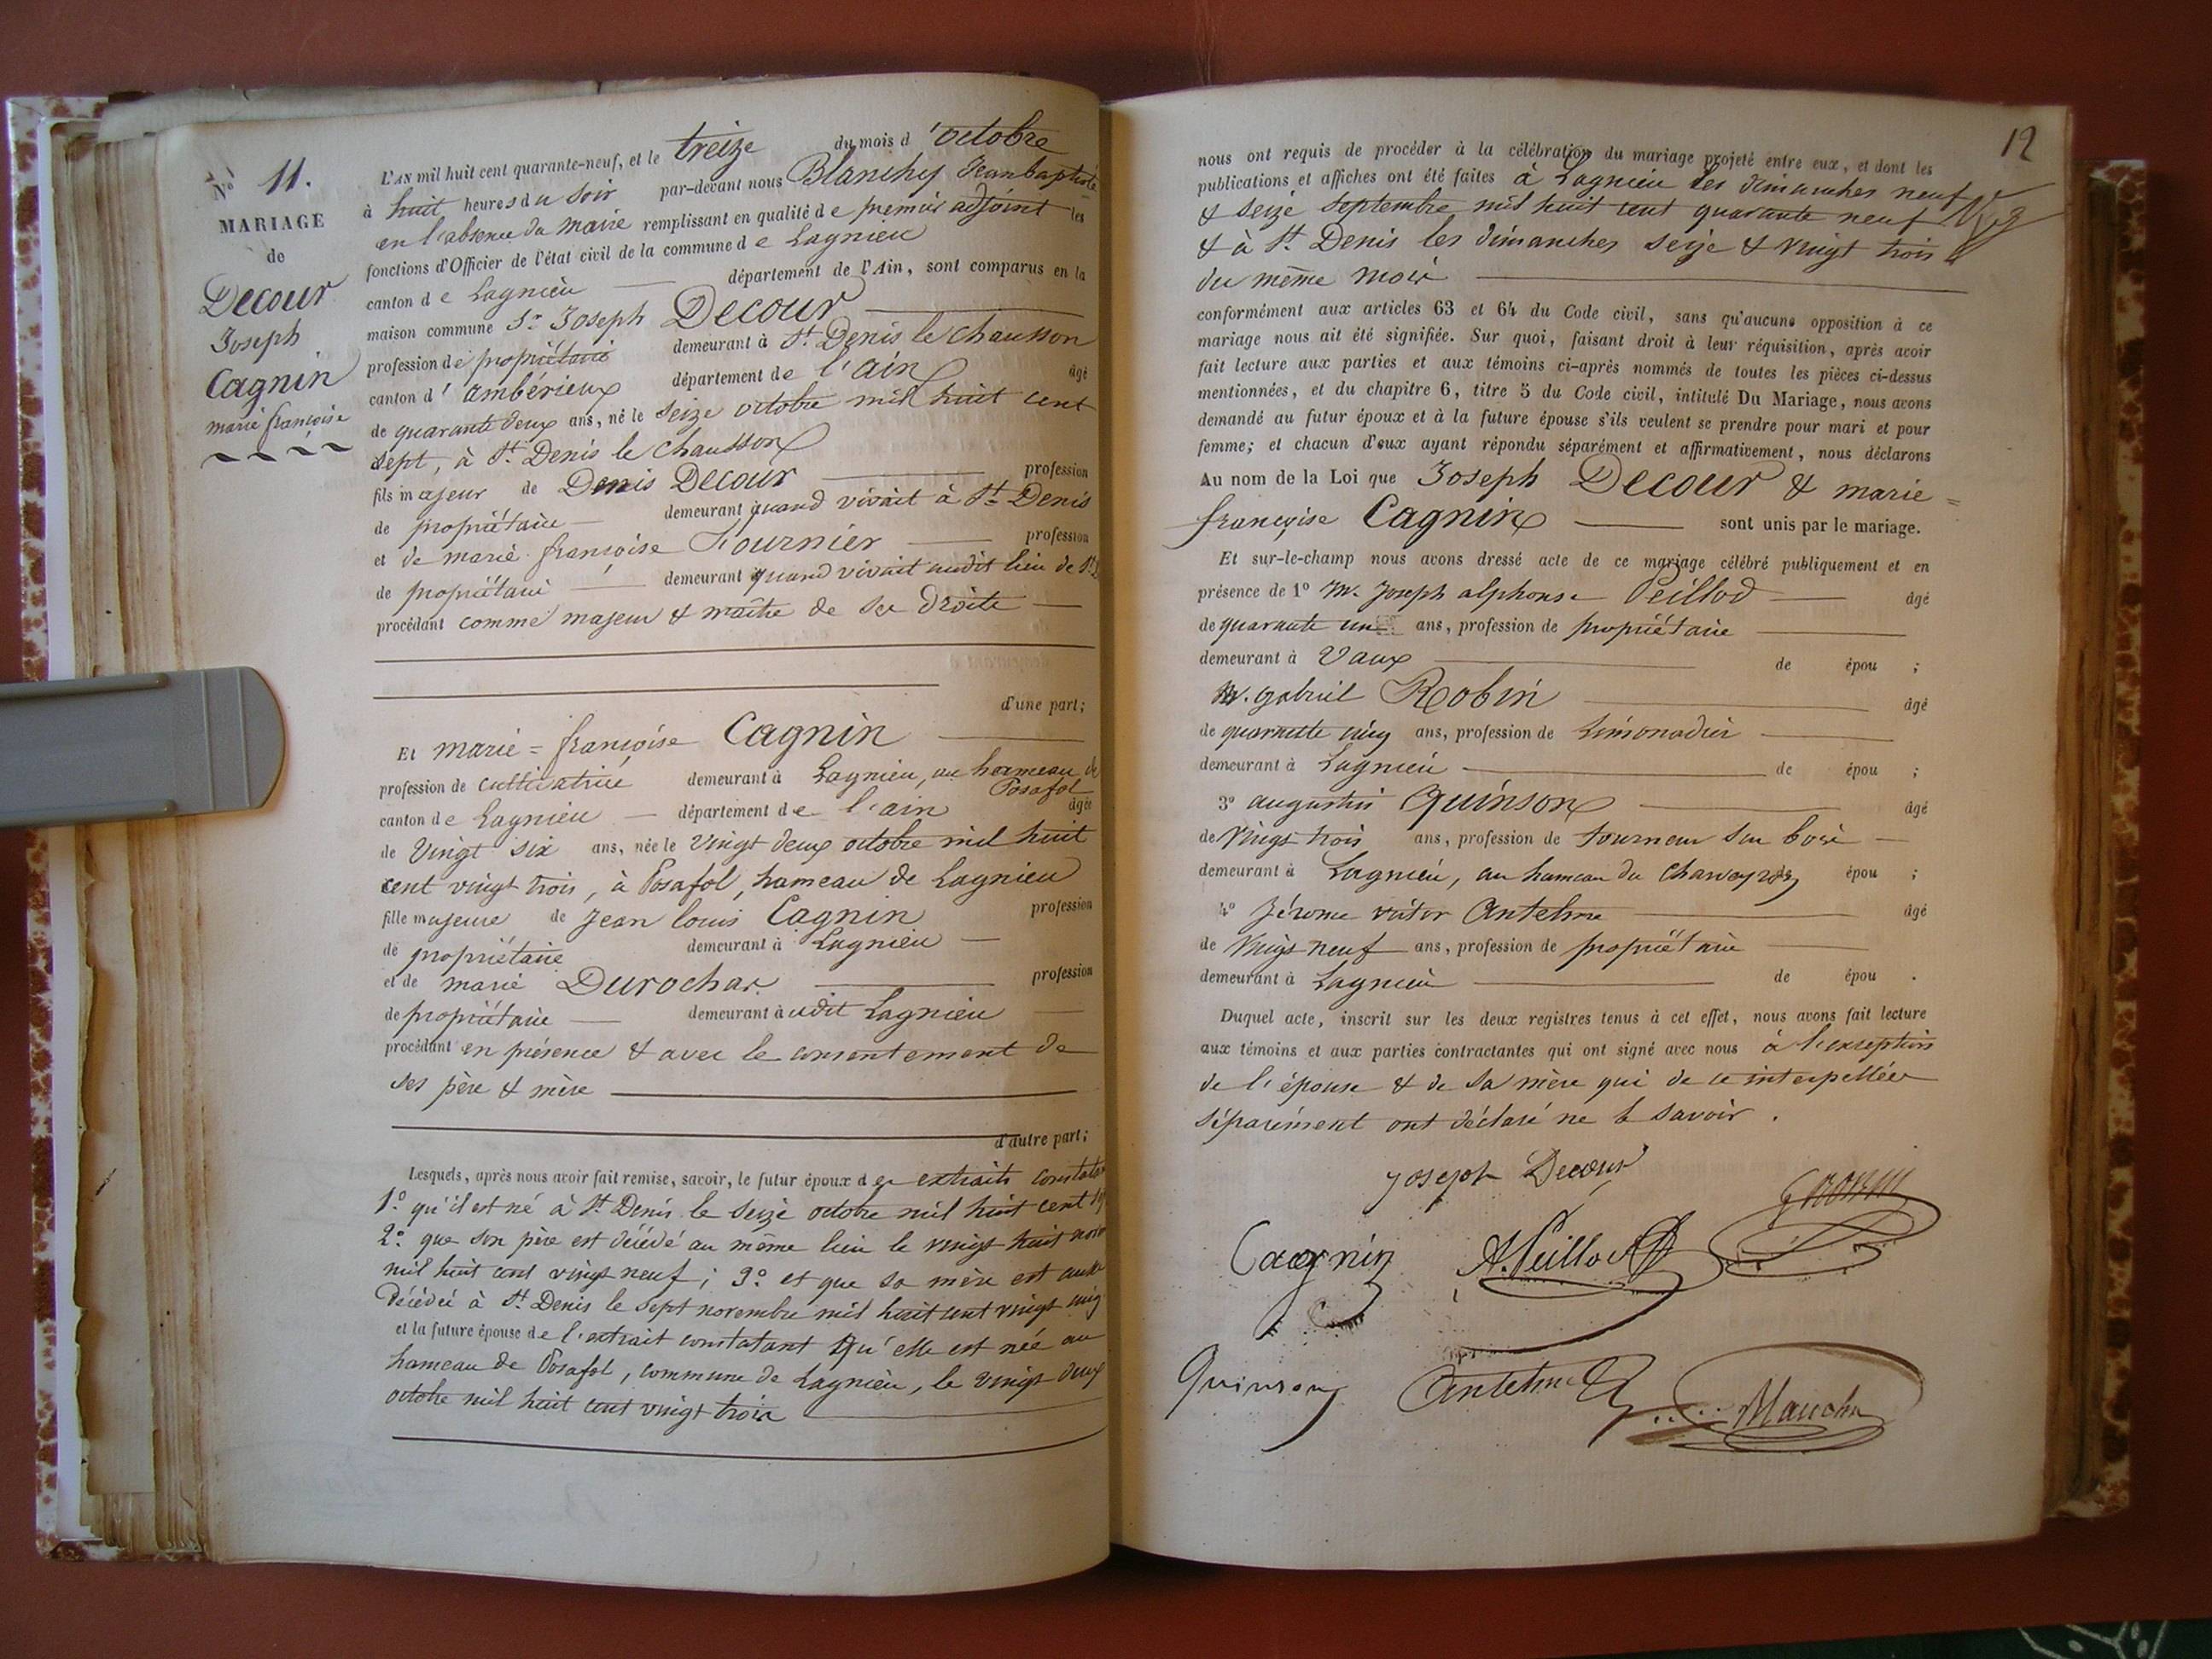 N° 11.
MARIAGE
de
Decour
Joseph
Cagnin
marie françoise
L'AN mil huit cent quarante-neuf, et le treize du mois d'octobre
à huit heures du soir par-devant nous Blanchy Jean baptiste
en l'absence du maire remplissant en qualité de premier adjoint les
fonctions d'Officier de l'état civil de la commune de Lagnieu
canton de Lagnieu département de l'Ain, sont comparus en la
maison commune Sr Joseph Decour
profession de propriétaire demeurant à St Denis le Chausson
canton d'ambérieux département de l'ain âgé
de quarante deux ans, né le seize octobre mil huit cent
sept, à St Denis le chausson
fils majeur de Denis Decour profession
de propriétaire demeurant quand vivait à St Denis
et de marie françoise Fournier profession
de propriétaire demeurant quand vivait audit lieu de St
procédant comme majeur & maître de ses droits
d'une part;
Et marie = françoise Cagnin
profession de cultivatrice demeurant à Lagnieu, au hameau de
Posafol
canton de Lagnieu département de l'ain âgée
de vingt six ans, née le vingt deux octobre mil huit
cent vingt trois, à Posafol, hameau de Lagnieu
fille majeure de Jean louis Cagnin profession
de propriétaire demeurant à Lagnieu
et de marie Durochar profession
de propriétaire demeurant audit Lagnieu
procédant en présence & avec le consentement de
ses père & mère
d'autre part;
Lesquels, après nous avoir fait remise, savoir, le futur époux des extraits constatan
1° qu'il est né à St Denis le seize octobre mil huit cent
2° que son père est décédé au même lieu le vingt huit
mil huit cent vingt neuf; 3° et que sa mère est aussi
décédée à St Denis le sept novembre mil huit cent vingt cinq
et la future épouse de l'extrait constatant qu'elle est née au
hameau de Posafol, commune de Lagnieu, le vingt deux
octobre mil huit cent vingt trois
12
nous ont requis de procéder à la célébration du mariage projeté entre eux, et dont les
publications et affiches ont été faites à Lagnieu les dimanches neuf
& seize septembre mil huit cent quarante neuf
& à St Denis les dimanches seize & vingt trois
du même mois
conformément aux articles 63 et 64 du Code civil, sans qu'aucune opposition à ce
mariage nous ait été signifiée. Sur quoi, faisant droit à leur réquisition, après avoir
fait lecture aux parties et aux témoins ci-après nommés de toutes les pièces ci-dessus
mentionnées, et du chapitre 6, titre 5 du Code civil, intitulé Du Mariage, nous avons
demandé au futur époux et à la future épouse s'ils veulent se prendre pour mari et pour
femme; et chacun d'eux ayant répondu séparément et affirmativement, nous déclarons
Au nom de la Loi que Joseph Decour & marie =
françoise Cagnin sont unis par le mariage.
Et sur-le-champ nous avons dressé acte de ce mariage célébré publiquement et en
présence de 1° M. Joseph alphonse Peillod âgé
de quarante un ans, profession de propriétaire
demeurant à Vaux de épou ;
M. gabriel Robin âgé
de quarante cinq ans, profession de Limonadier
demeurant à Lagnieu de épou ;
3° augustin Quinson âgé
de vingt trois ans, profession de tourneur sur bois
demeurant à Lagnieu, au hameau de épou ;
4° Jérome victor Antelme âgé
de vingt neuf ans, profession de propriétaire
demeurant à Lagnieu de épou .
Duquel acte, inscrit sur les deux registres tenus à cet effet, nous avons fait lecture
aux témoins et aux parties contractantes qui ont signé avec nous à l'exception
de l'épouse & de sa mère qui de ce interpellées
séparément ont déclaré ne le savoir.
Joseph Decour
Cagnin A. Peillod
Quinson Antelme